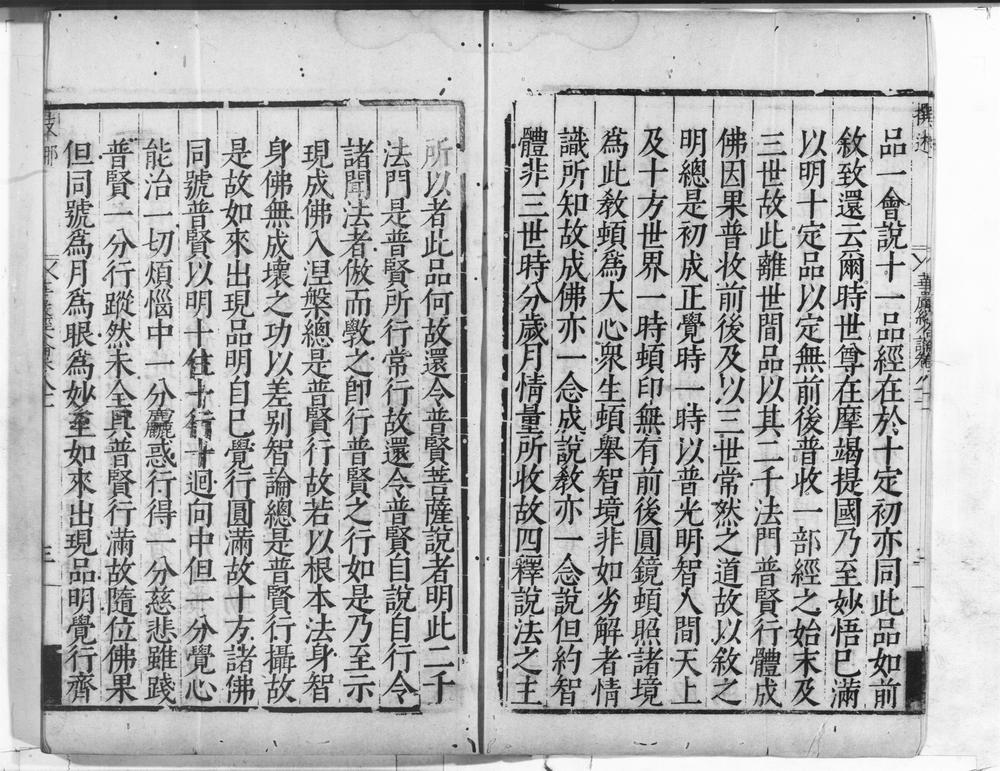 品一會說十一品經在於十定初亦同此品如前
敘致還云爾時世尊在摩竭提國乃至妙悟已滿
以明十定品以定無前後普收一部經之始末及
三世故此離世間品以其二千法門普賢行體成
佛因果普收前後及以三世常然之道故以敘之
明總是初成正覺時一時以普光明智人間天上
及十方世界一時頓印無有前後圓鏡頓照諸境
為此教頓為大心眾生頓舉智境非如劣解者情
識所知故成佛亦一念成說教亦一念說但約智
體非三世時分歲月情量所收故四釋說法之主
所以者此品何故還令普賢菩薩說者明此二千
法門是普賢所行常行故還令普賢自說自行令
諸聞法者倣而斆之即行普賢之行如是乃至示
現成佛入涅槃總是普賢行故若以根本法身智
身佛無成壞之功以差別智論總是普賢行攝故
是故如來出現品明自已覺行圓滿故十方諸佛
同號普賢以明十住十行十迴向中但一分覺心
能治一切煩惱中一分麤惑行得一分慈悲雖踐
普賢一分行蹤然未全具普賢行滿故隨位佛果
但同號為月為眼為妙至如來出現品明覺行齊